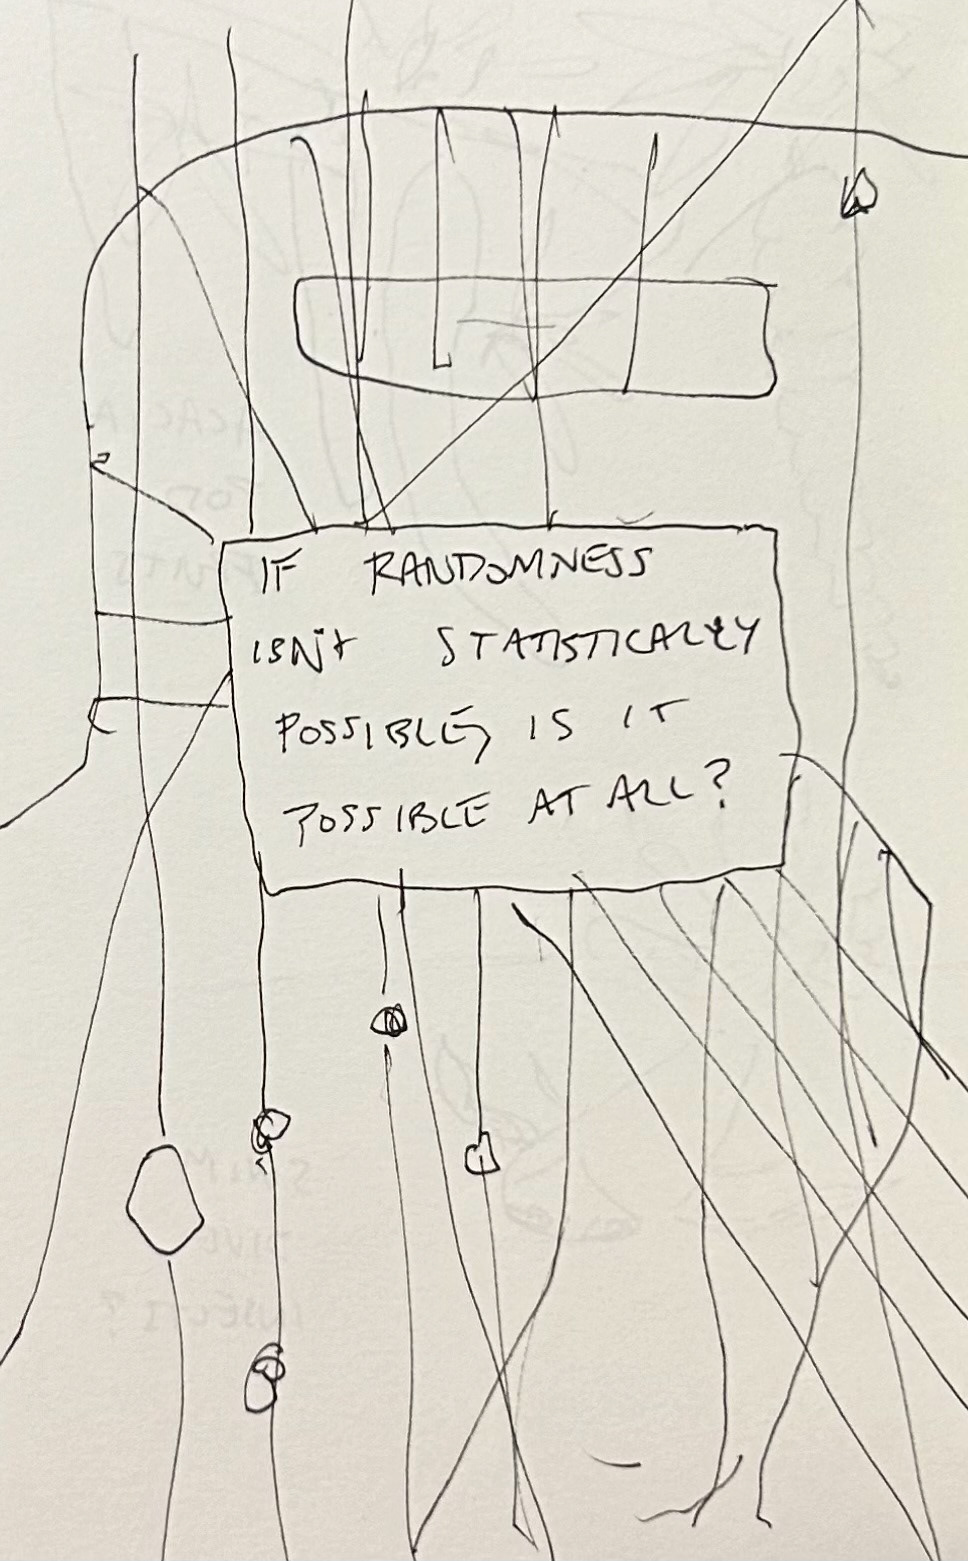 IF RANDOMNESS
ISN'T STATISTICALLY
POSSIBLE, IS IT
POSSIBLE AT ALL?